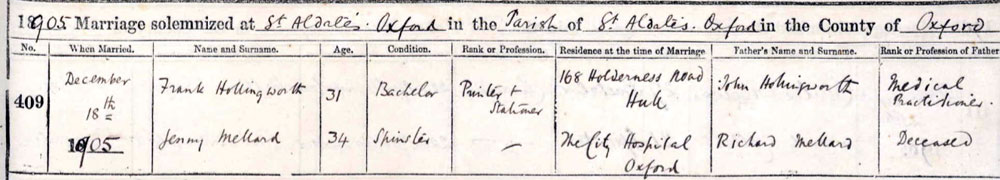 1905. Marriage solemnized at St Aldate's. Oxford in the Parish of St Aldate's. Oxford in the County of Oxford
No. When Married. Name and Surname. Age. Condition. Rank or Profession. Residence at the time of Marriage Father's Name and Surname. Rank or Profession of Father
409 December 18th 1905 Frank Hollingworth 31 Bachelor Printer & Stationer 168 Holderness Road Hull John Hollingworth Medical Practitioner.
Jenny Mellard 34 Spinster — The City Hospital Oxford Richard Mellard Deceased